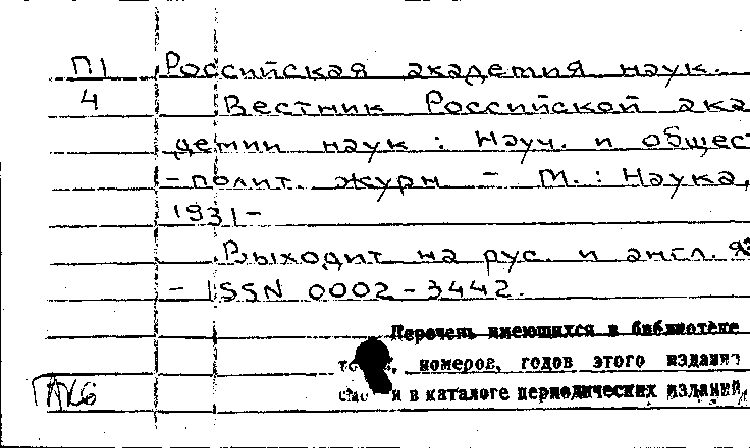 П1 Российская академия наук.
4 Вестник Российской ака
демии наук : Науч. и общес
-полит. журн - М. : Наука,
1931-
Выходит на рус. и англ. яз
- ISSN 0002-3442.
Перечень имеющихся в библиотеке
номеров, годов этого издания
и в каталоге периодических изданий